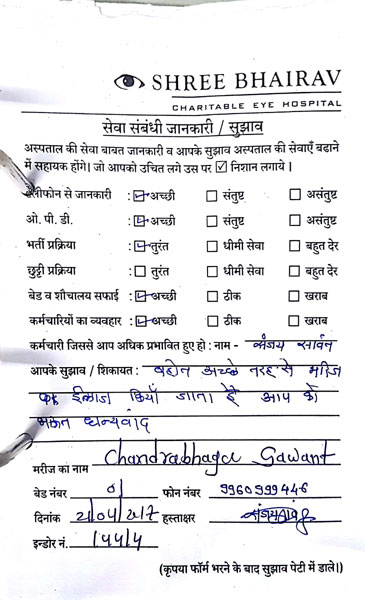 SHREE BHAIRAV
CHARITABLE EYE HOSPITAL
सेवा संबंधी जानकारी / सुझाव
अस्पताल की सेवा बाबत जानकारी व आपके सुझाव अस्पताल की सेवाएँ बढाने
में सहायक होंगे। जो आपको उचित लगे उस पर ☑ निशान लगाये ।
लीफोन से जानकारी : ☑ अच्छी ☐ संतुष्ट ☐ असंतुष्ट
ओ. पी. डी. : ☑ अच्छी ☐ संतुष्ट ☐ असंतुष्ट
भर्ती प्रक्रिया : ☑ तुरंत ☐ धीमी सेवा ☐ बहुत देर
छुट्टी प्रक्रिया : ☐ तुरंत ☐ धीमी सेवा ☐ बहुत देर
बेड व शौचालय सफाई : ☑ अच्छी ☐ ठीक ☐ खराब
कर्मचारियों का व्यवहार : ☑ अच्छी ☐ ठीक ☐ खराब
कर्मचारी जिससे आप अधिक प्रभावित हुए हो : नाम -
आपके सुझाव / शिकायत : बहोत अच्छे तरह से मरिज
का ईलाज किया जाता है आप को
धन्यवाद
मरीज का नाम Chandrabhaga Sawant
बेड नंबर फोन नंबर
दिनांक हस्ताक्षर
इन्डोर नं.
(कृपया फॉर्म भरने के बाद सुझाव पेटी में डाले।)